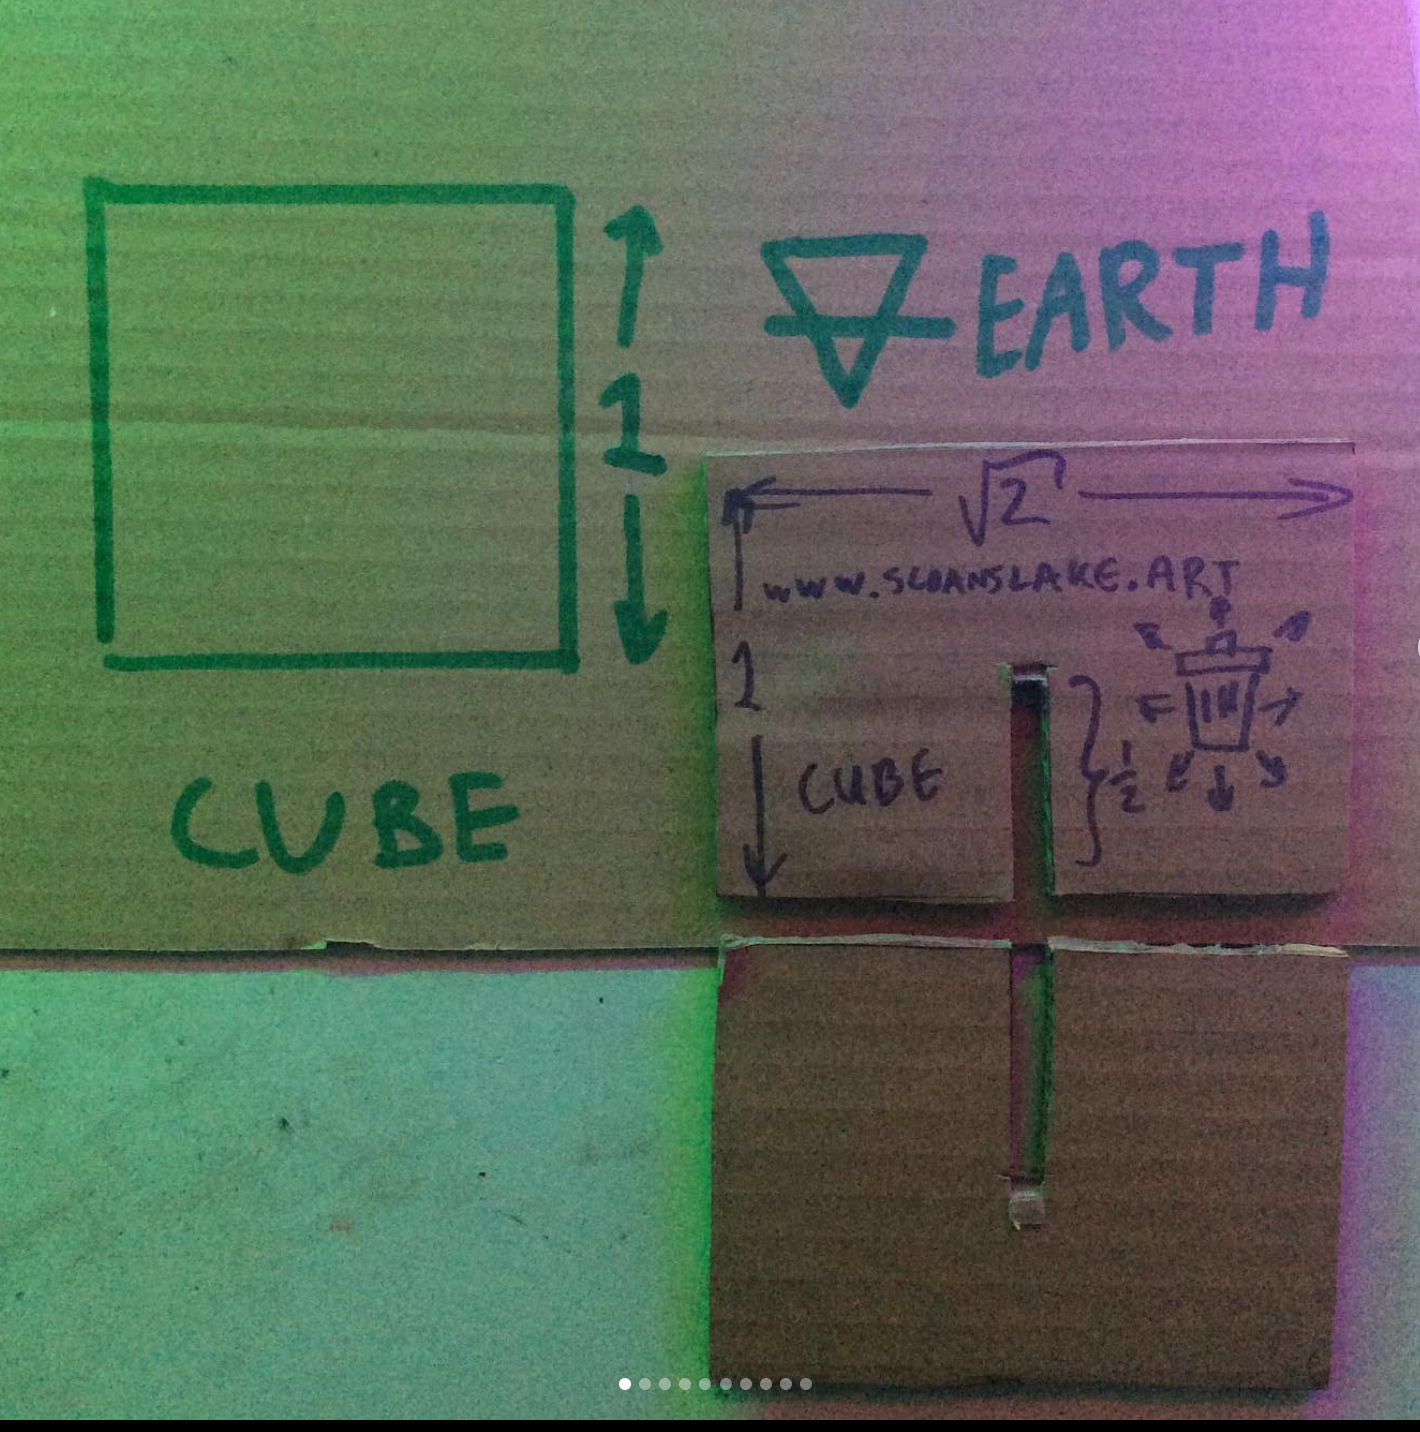 1
EARTH
CUBE
√2
www.SLOANSLAKE.ART
1
CUBE
1/2